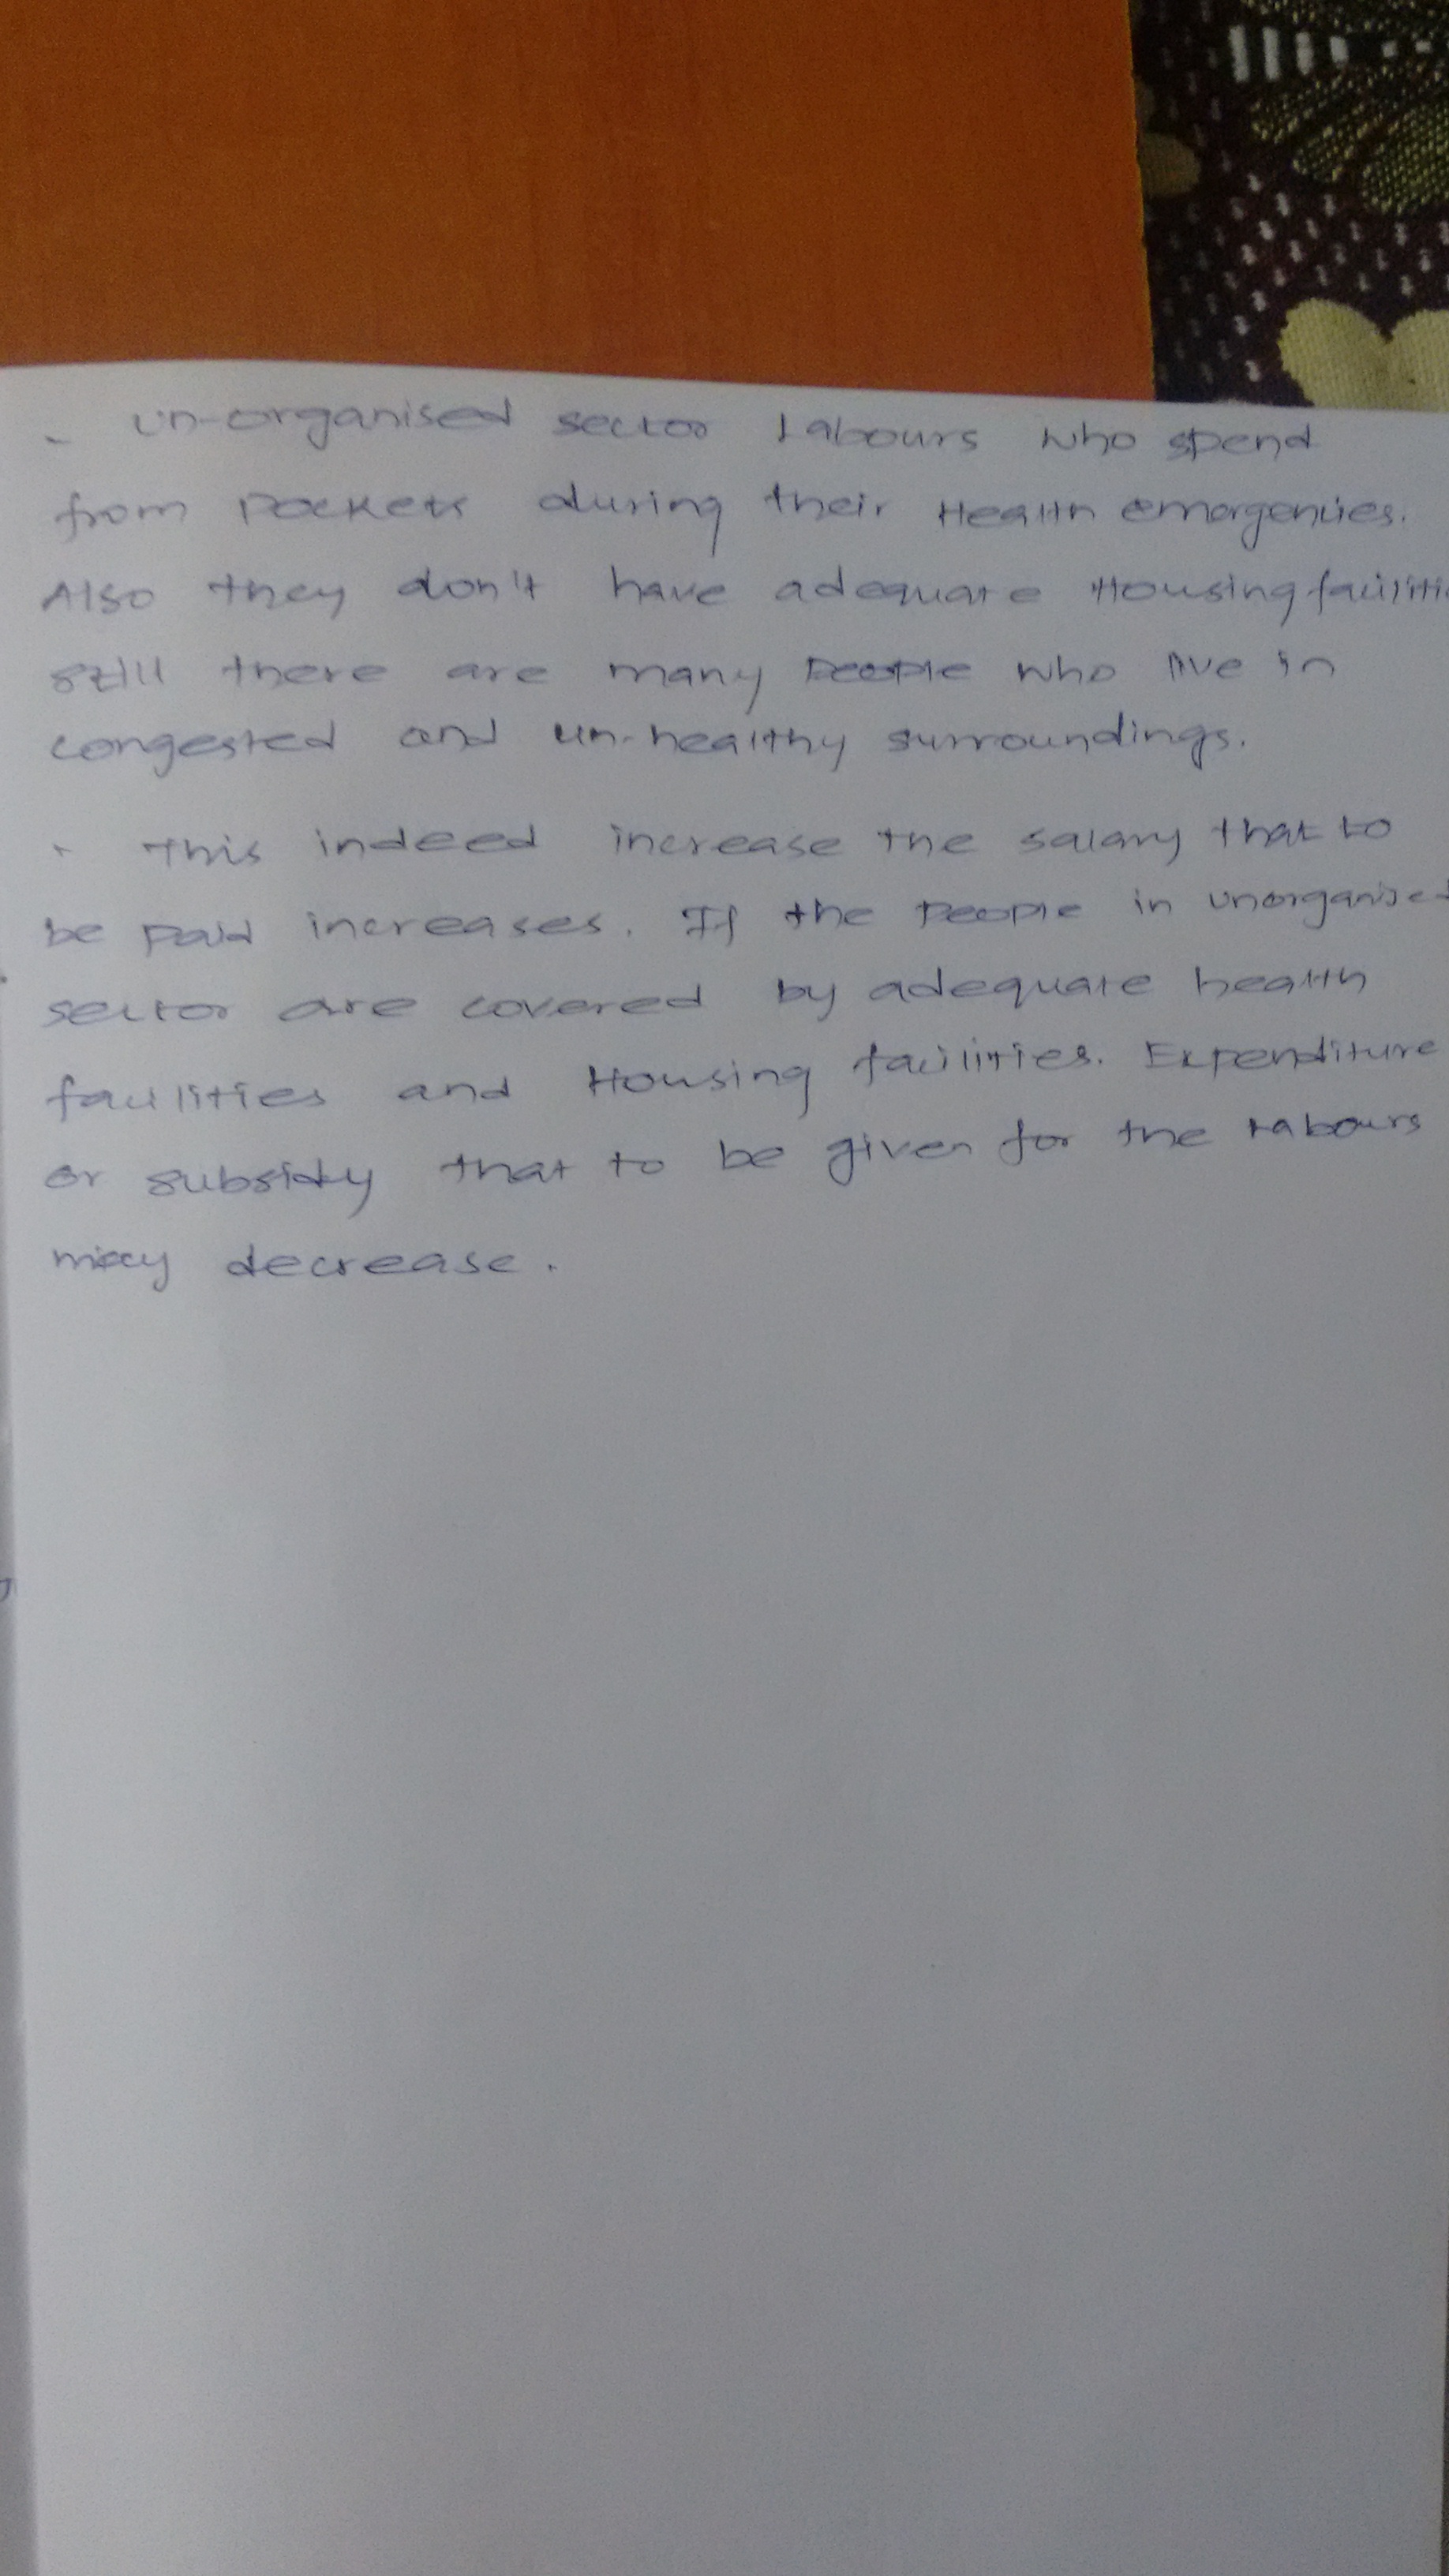 - un-organised sector Labours who spend
from Pockets during their Health emergencies.
Also they don't have adequate Housing faciliti
still there are many People who live in
congested and un-healthy surroundings.
- This indeed increase the salary that to
be paid increases. If the People in unorganised
sector are covered by adequate health
facilities and Housing facilities. Expenditure
or subsidy that to be given for the Labours
may decrease.